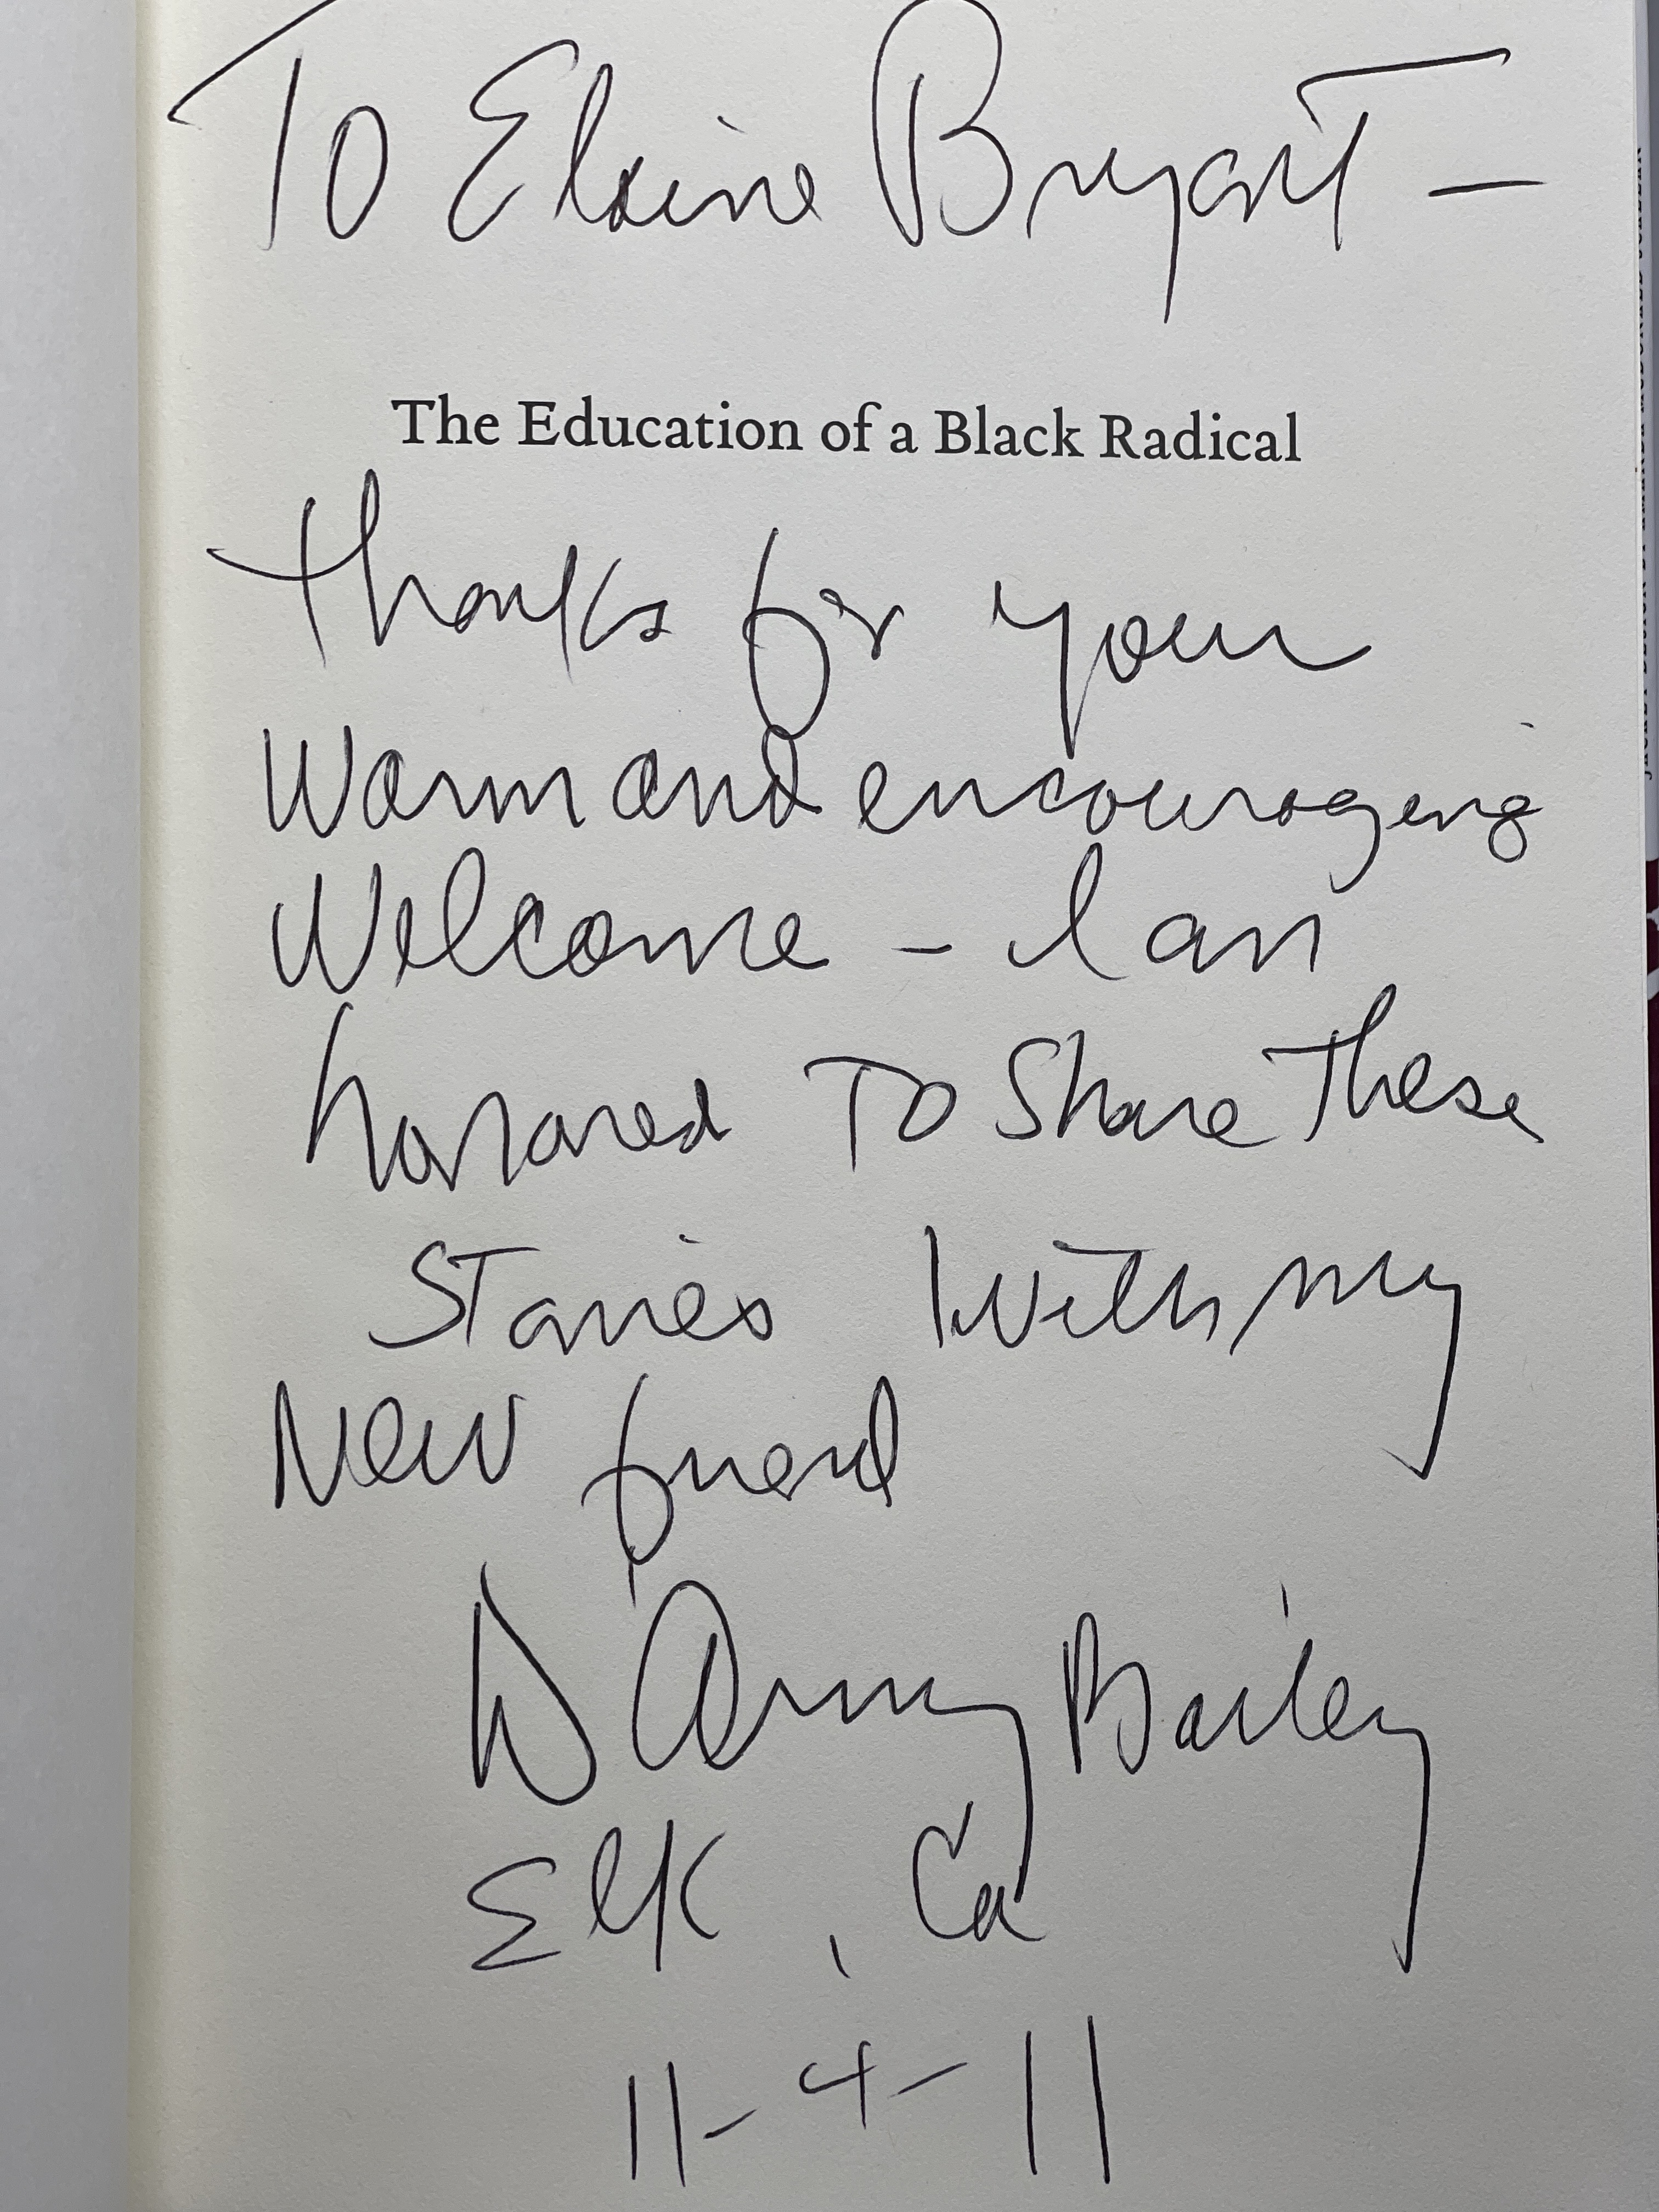 To Elaine Bryant —
The Education of a Black Radical
Thanks for your
Warm and encouraging
Welcome – I am
honored To Share These
Stories With my
New friend
D'Army Bailey
Elk, Ca
11-4-11